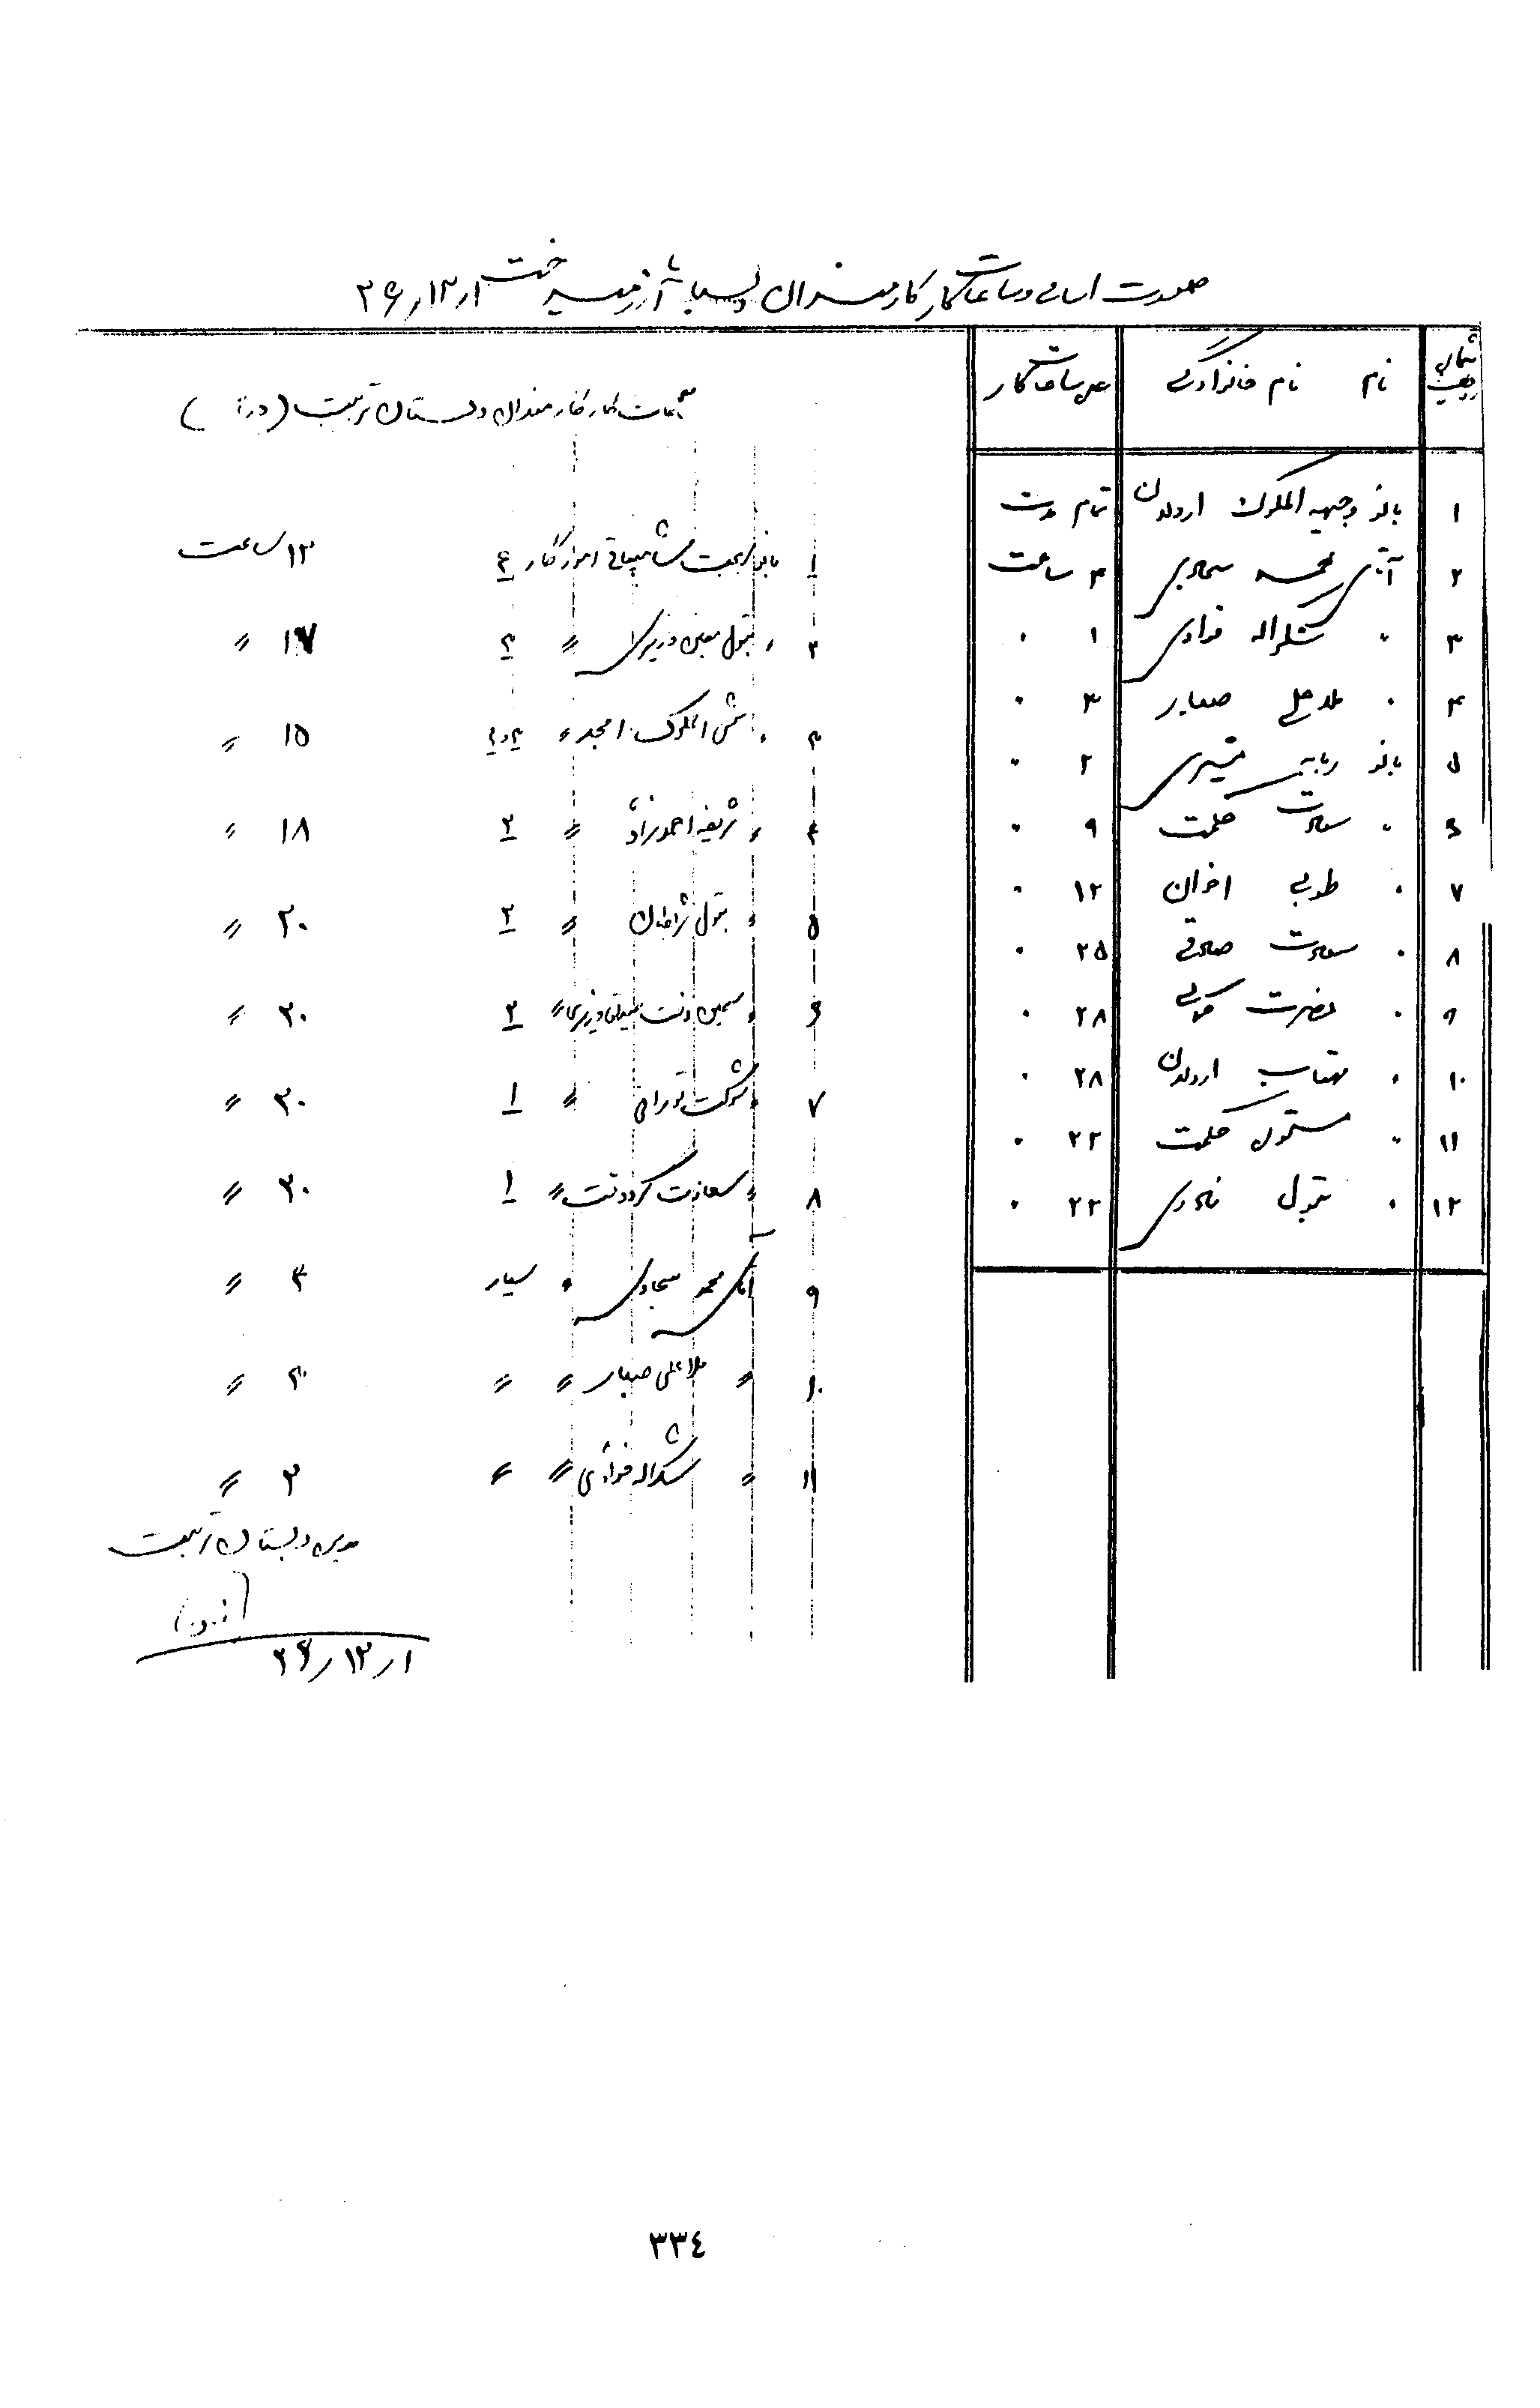 صورت اسامی و ساعات کار کارمندان دبستان آزرمیدخت ۲۶٫۱۲٫۱
شماره ردیف نام نام خانوادگی عده ساعات کار
۱ بانو وجیهه الملوک اردلان تمام مدت
۲ آقای محمد سجادی ۴ ساعت
۳ " شکراله فوادی ۱ "
۴ " ملا علی صبار ۳ "
۵ بانو ربابه ۲ "
۶ " سعادت حکمت ۹ "
۷ " طوبی اخوان ۱۲ "
۸ " سعادت صادقی ۲۵ "
۹ " حضرت ۲۸ "
۱۰ " مهتاب اردلان ۲۸ "
۱۱ " حکمت ۲۲ "
۱۲ " بتول ۲۲ "
ساعات کار کارمندان دبستان تربیت
۱ بانو آموزگار ۶ ۱۳ ساعت
۲ " بتول معین وزیری " ۴ ۱۷ "
۳ " شمس الملوک امجد " ۱۵ "
۴ " شریفه احمدنژاد " ۳ ۱۸ "
۵ " بتول " ۲ ۲۰ "
۶ " سیمین دخت " ۲ ۳۰ "
۷ " شوکت تورانی " ۱ ۳۰ "
۸ " سعادت " ۱ ۳۰ "
۹ آقای محمد سجادی " سیار ۴ "
۱۰ " ملا علی صبار " " ۴ "
۱۱ " شکراله فوادی " " ۳ "
مدیر دبستان تربیت
۲۶٫۱۲٫۱
۳۳٤